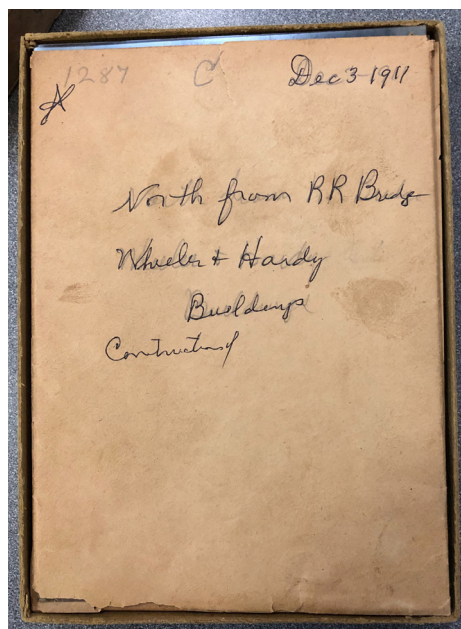 1287 C Dec 3-1911
A
North from RR Bridge
Wheeler + Hardy
Buildings
Construction